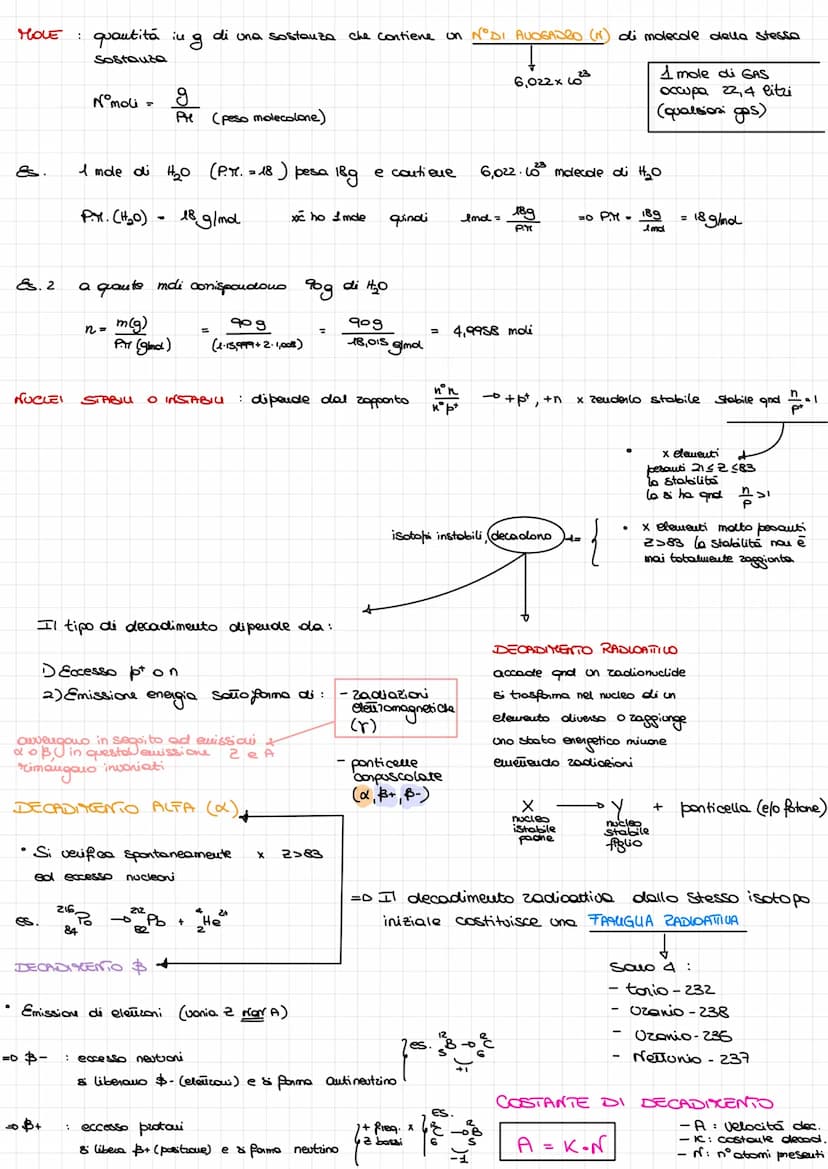 MOLE : quantità in g di una sostanza che contiene un N° DI AVOGADRO (N) di molecole della stessa
sostanza
6,022 x 10²³
N° moli = g / PM (peso molecolare)
1 mole di GAS
occupa 22,4 litri
(qualsiasi gas)
Es. 1 mole di H₂O (P.M. = 18) pesa 18g e contiene 6,022·10²³ molecole di H₂O
P.M. (H₂O) = 18 g/mol xc̄ ho 1 mole quindi 1mol = 18g / P.M => PM = 18g / 1mol = 18 g/mol
Es. 2 a quante moli corrispondono 90g di H₂O
n = m(g) / PM (g/mol) = 90 g / (1·15,999 + 2·1,008) = 90g / 18,015 g/mol = 4,9958 moli
NUCLEI STABILI O INSTABILI : dipende dal rapporto n°n / n°p⁺ → +p⁺, +n x renderlo stabile stabile qnd n / p⁺ = 1
• x elementi
pesanti 21 ≤ Z ≤ 83
la stabilità
la si ha qnd n / p > 1
• x elementi molto pesanti
Z>83 la stabilità non è
mai totalmente raggiunta
isotopi instabili, decadono
Il tipo di decadimento dipende da:
1) Eccesso p⁺ o n
2) Emissione energia sotto forma di :
- radiazioni
elettromagnetiche
(γ)
avvengono in seguito ad emissioni
α o β, in questa emissione Z e A
rimangono invariati
- particelle
corpuscolate
(α, β+, β-)
DECADIMENTO RADIOATTIVO
accade qnd un radionuclide
si trasforma nel nucleo di un
elemento diverso o raggiunge
uno stato energetico minore
emettendo radiazioni
X → Y + particella (e/o fotone)
nucleo
istabile
padre
nucleo
stabile
figlio
DECADIMENTO ALFA (α)
• Si verifica spontaneamente x Z>83
ed eccesso nucleoni
es. ²¹⁶₈₄Po → ²¹²₈₂Pb + ⁴₂He²⁺
=> Il decadimento radioattivo dallo stesso isotopo
iniziale costituisce una FAMIGLIA RADIOATTIVA
Sono 4 :
- torio - 232
- Uranio - 238
- Uranio - 235
- Nettunio - 237
DECADIMENTO β
• Emissione di elettroni (varia Z NON A)
=> β- : eccesso neutroni
si liberano β- (elettroni) e si forma antineutrino
es. ¹²₅B → ¹²₆C
+1
=> β+ : eccesso protoni
si libera β+ (positrone) e si forma neutrino
+ freq. x
Z bassi
ES.
₆C → ₅B
-1
COSTANTE DI DECADIMENTO
A = K·N
- A : velocità dec.
- K : costante decad.
- N : n° atomi presenti